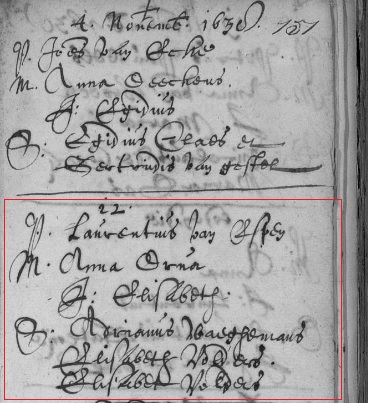 4. Novemb. 1638. 151
P. Joes van Eche
M. Anna Geechens.
J: Egidius
S: Egidius Claes et
Gertrudis van gestel
22.
P. Laurentius van Espen
M. Anna Orna
J: Elisabeth.
S: Adrianus Waeghemans
Elisabeth Volders.
Elisabet Volders